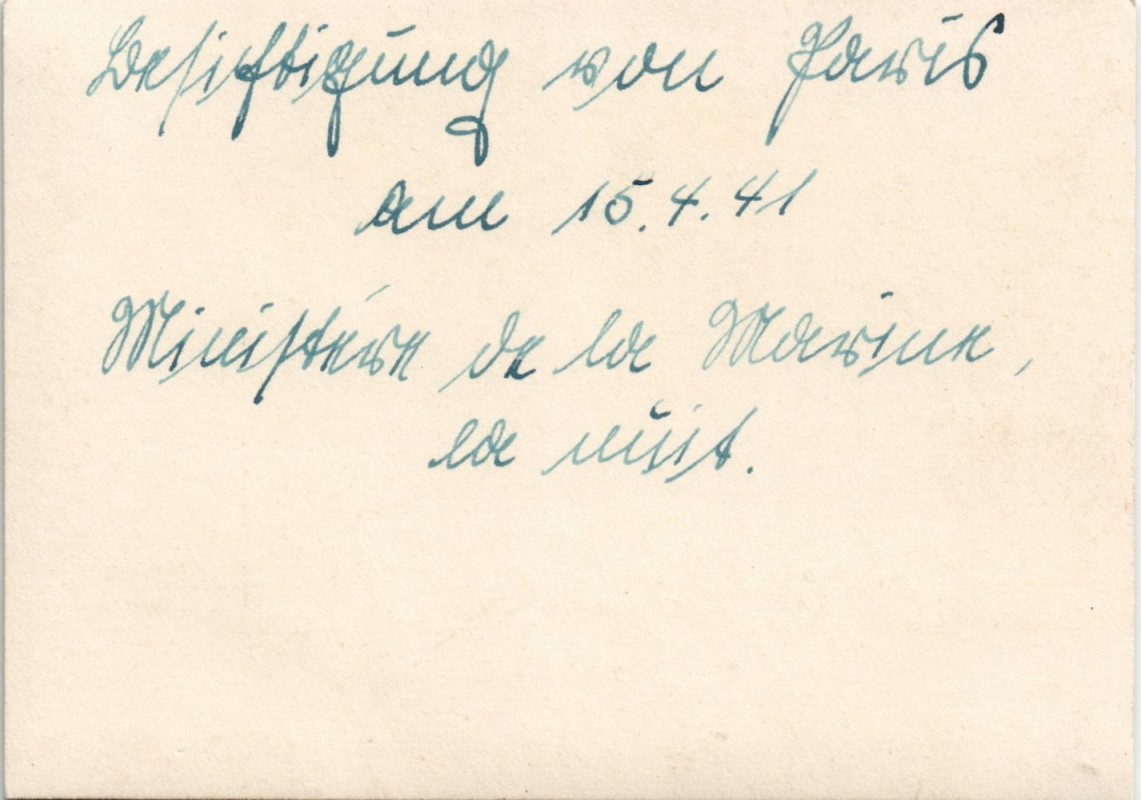 Besichtigung von Paris
am 15.4.41
Ministére de la Marine,
la nuit.